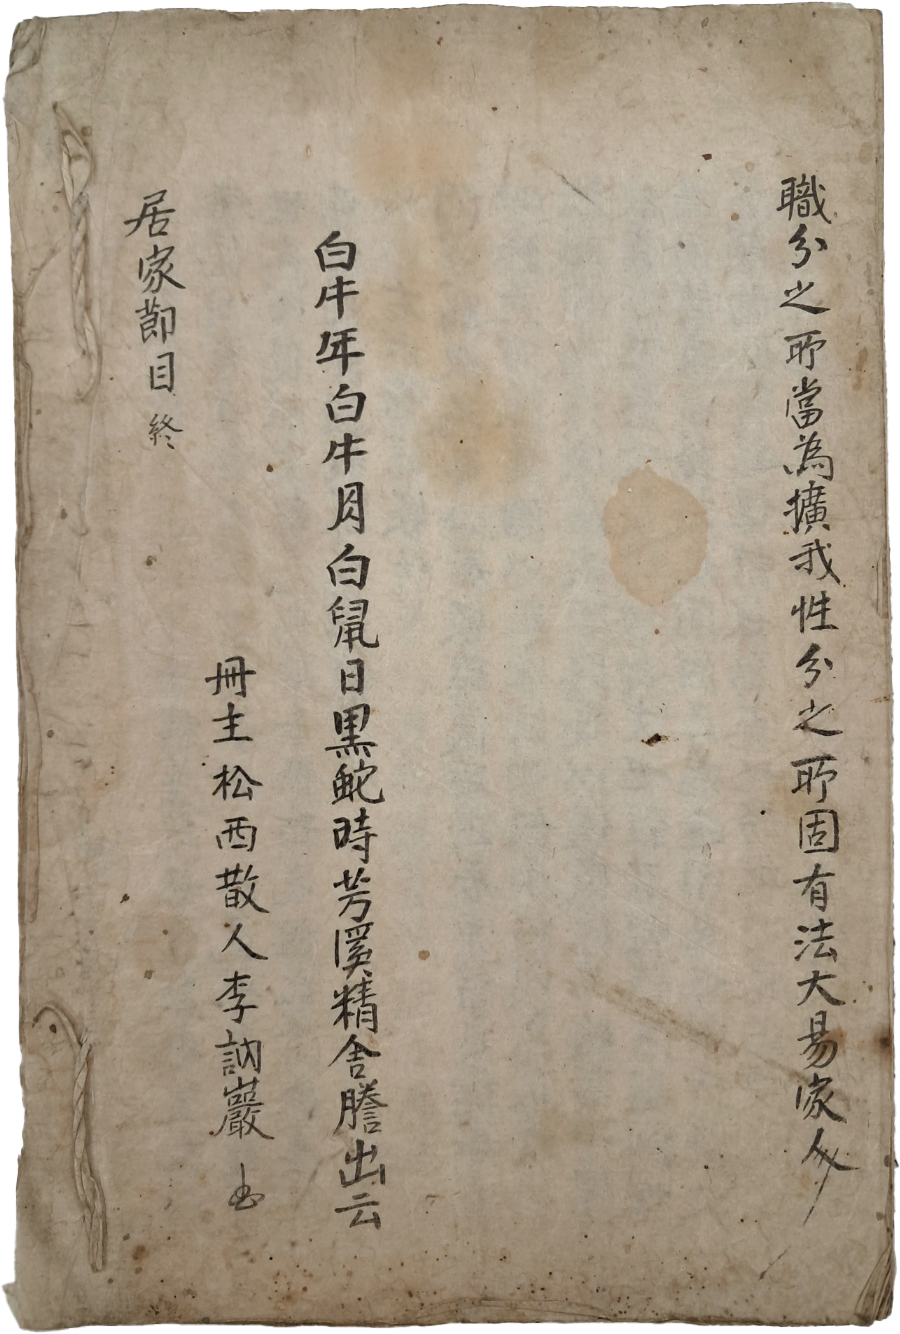 職分之所當為擴我性分之所固有法大易家人
白牛年白牛月白鼠日黑蛇時芳溪精舍謄出云
冊主松西散人李訥巖
居家節目終